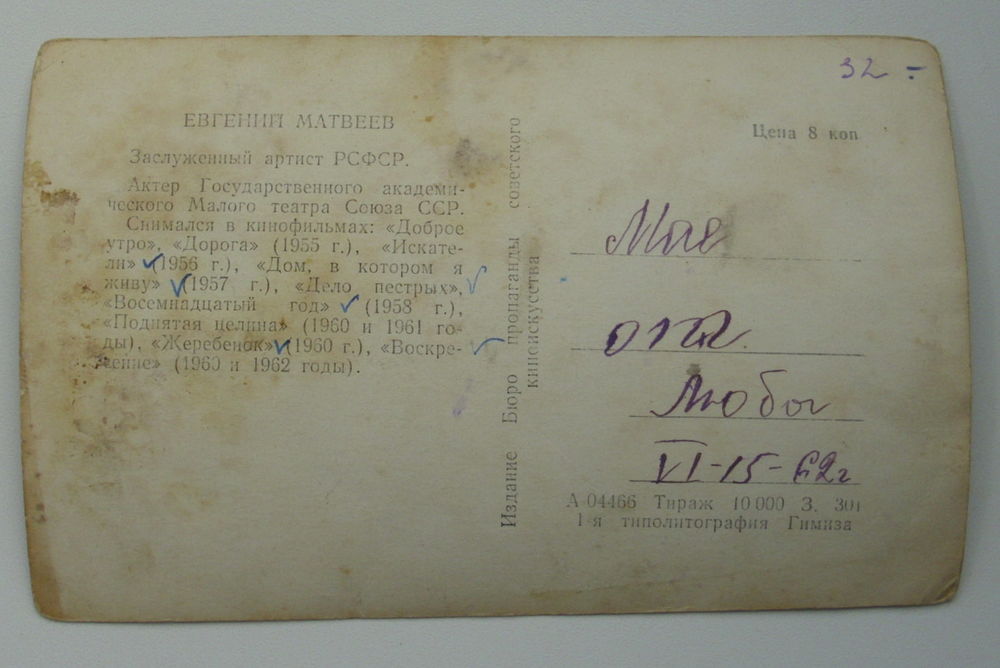 ЕВГЕНИЙ МАТВЕЕВ
Заслуженный артист РСФСР.
Актер Государственного академи-
ческого Малого театра Союза ССР.
Снимался в кинофильмах: «Доброе
утро», «Дорога» (1955 г.), «Искате-
ли» (1956 г.), «Дом, в котором я
живу» (1957 г.), «Дело пестрых»,
«Восемнадцатый год» (1958 г.),
«Поднятая целина» (1960 и 1961 го-
ды), «Жеребенок» (1960 г.), «Воскре-
сение» (1960 и 1962 годы).
Издание Бюро пропаганды советского
киноискусства
32 -
Цена 8 коп
Мае
от
Любы
VI-15-62г
А-04466 Тираж 10 000 З. 301
1-я типолитография Гимиза